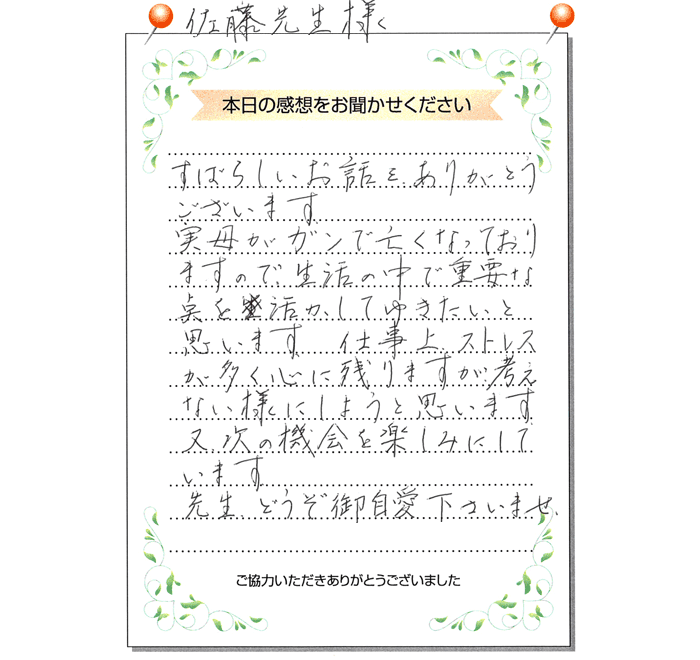 佐藤先生様へ
本日の感想をお聞かせください
すばらしいお話を、ありがとう
ございます
実母がガンで亡くなっており
ますので、生活の中で重要な
点を活かしてゆきたいと
思います。仕事上、ストレス
が多く心に残りますが、考え
ない様にしようと思います
又、次の機会を楽しみにして
います
先生、どうぞ御自愛下さいませ、
ご協力いただきありがとうございました